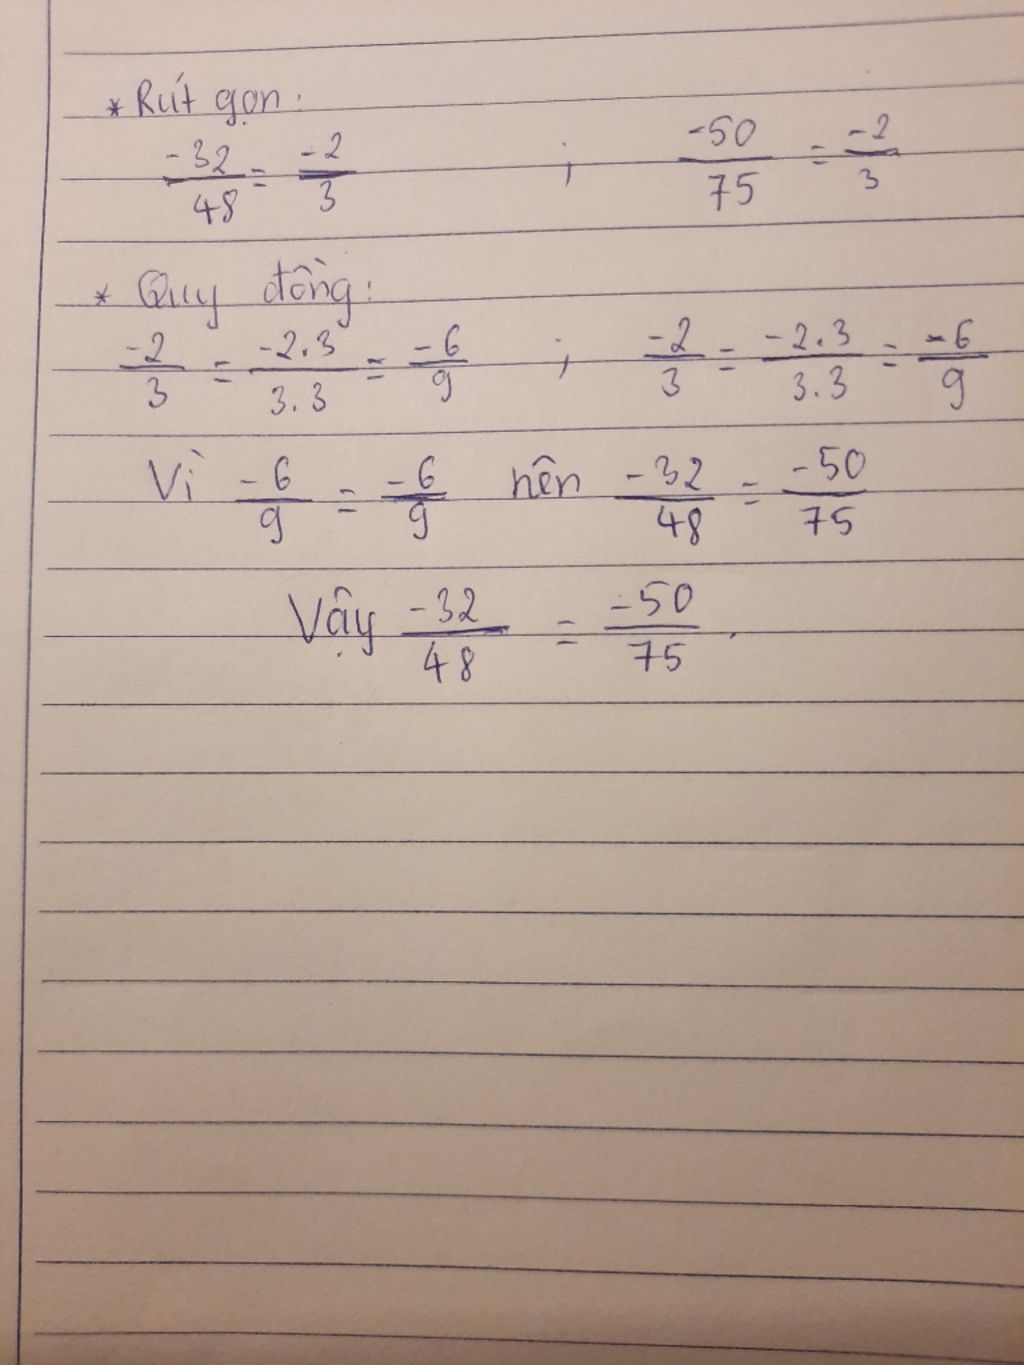 * Rút gọn:
-32/48 = -2/3 ; -50/75 = -2/3
* Quy đồng:
-2/3 = -2.3/3.3 = -6/9 ; -2/3 = -2.3/3.3 = -6/9
Vì -6/9 = -6/9 nên -32/48 = -50/75
Vậy -32/48 = -50/75.